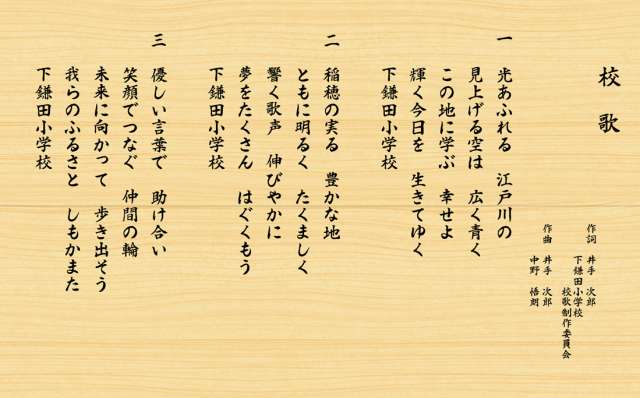 校歌
作詞 井手 次郎
下鎌田小学校
校歌制作委員会
作曲 井手 次郎
中野 悟朗
一 光あふれる 江戸川の
見上げる空は 広く青く
この地に学ぶ 幸せよ
輝く今日を 生きてゆく
下鎌田小学校
二 稲穂の実る 豊かな地
ともに明るく たくましく
響く歌声 伸びやかに
夢をたくさん はぐくもう
下鎌田小学校
三 優しい言葉で 助け合い
笑顔でつなぐ 仲間の輪
未来に向かって 歩き出そう
我らのふるさと しもかまた
下鎌田小学校